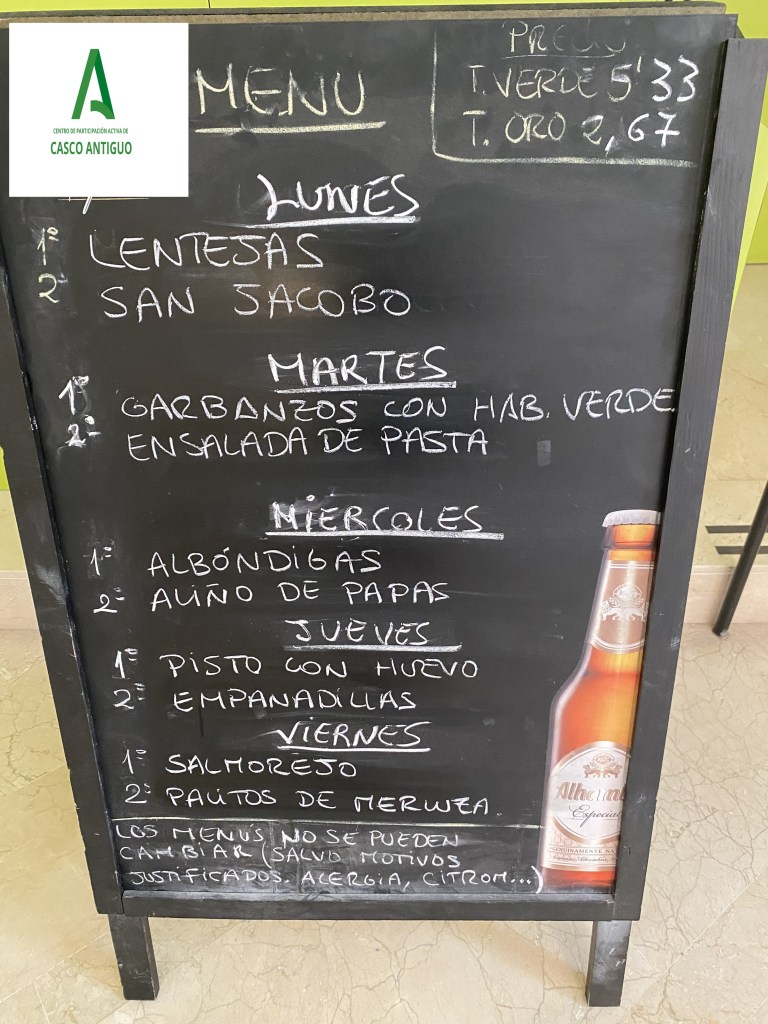 CENTRO DE PARTICIPACIÓN ACTIVA DE
CASCO ANTIGUO
MENU
PRECIO
T. VERDE 5'33
T. ORO 2,67
LUNES
1º LENTEJAS
2º SAN JACOBO
MARTES
1º GARBANZOS CON HAB. VERDE.
2º ENSALADA DE PASTA
MIERCOLES
1º ALBÓNDIGAS
2º ALIÑO DE PAPAS
JUEVES
1º PISTO CON HUEVO
2º EMPANADILLAS
VIERNES
1º SALMOREJO
2º PALITOS DE MERLUZA.
LOS MENÚS NO SE PUEDEN
CAMBIAR (SALVO MOTIVOS
JUSTIFICADOS. ALERGIA, CITROM...)
Alham
Especial